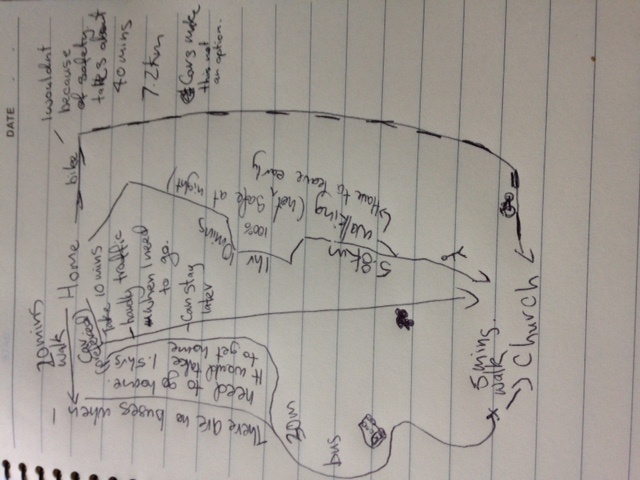 DATE
I wouldnt
because
of safety.
takes about
40 mins
7.2km
Cars make
this not
an option.
bike
Home
20mins
walk
take 10 mins
- hardly traffic
when I need
to go.
- Can stay
later
1hr
mins
Walking (not 100% safe at night)
↳ Have to leave early
There are no buses when
need to go home.
It would take 1.5hrs
to get home
20m
bus
5 mins.
walk
Church